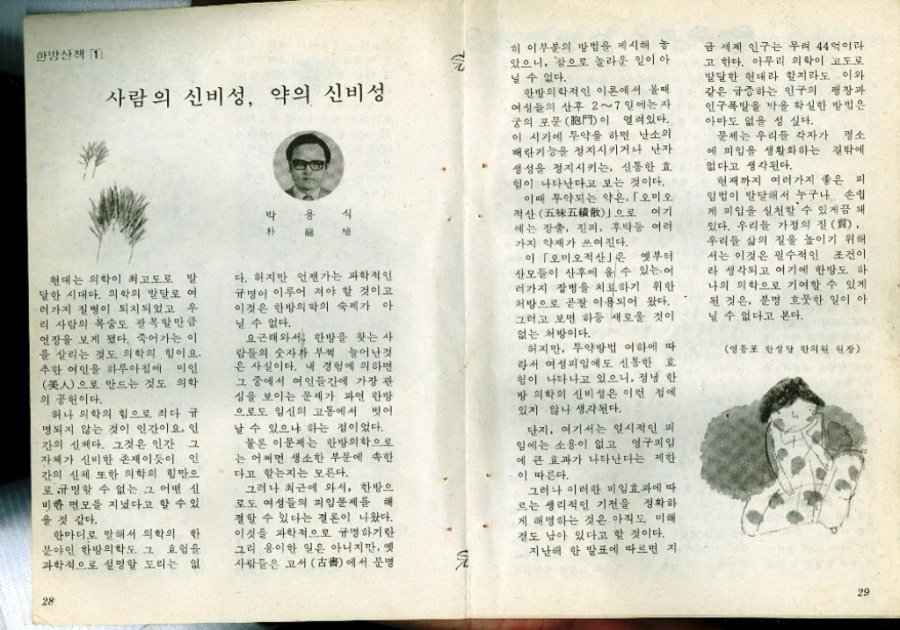 한방산책 [1]
사람의 신비성, 약의 신비성
박 용 식
朴 龍 植
현대는 의학이 최고도로 발
달한 시대다. 의학의 발달로 여
러가지 질병이 퇴치되었고 우
리 사람의 목숨도 괄목할만큼
연장을 보게 됐다. 죽어가는 이
를 살리는 것도 의학의 힘이요.
추한 여인을 하루아침에 미인
(美人)으로 만드는 것도 의학
의 공헌이다.
허나 의학의 힘으로 죄다 규
명되지 않는 것이 인간이요, 인
간의 신체다. 그것은 인간 그
자체가 신비한 존재이듯이 인
간의 신체 또한 의학의 힘만으
로 규명할 수 없는 그 어떤 신
비한 면모를 지녔다고 할 수 있
을 것 같다.
한마디로 말해서 의학의 한
분야인 한방의학도 그 효험을
과학적으로 설명할 도리는 없
다. 허지만 언젠가는 과학적인
규명이 이루어 져야 할 것이고
이것은 한방의학의 숙제가 아
닐 수 없다.
요근래와서, 한방을 찾는 사
람들의 숫자가 부쩍 늘어난것
은 사실이다. 내 경험에 의하면
그 중에서 여인들간에 가장 관
심을 보이는 문제가 과연 한방
으로도 임신의 고통에서 벗어
날 수 있으냐 하는 점이었다.
물론 이문제는 한방의학으로
는 어쩌면 생소한 부문에 속한
다고 할는지는 모른다.
그러나 최근에 와서, 한방으
로도 여성들의 피임문제를 해
결할 수 있다는 결론이 나왔다.
이것을 과학적으로 규명하기란
그리 용이한 일은 아니지만, 옛
사람들은 고서(古書)에서 분명
28
히 이부분의 방법을 제시해 놓
았으니, 참으로 놀라운 일이 아
닐 수 없다.
한방의학적인 이론에서 볼때
여성들의 산후 2～7일에는 자
궁의 포문(胞門)이 열려있다.
이 시기에 투약을 하면 난소의
배란기능을 정지시키거나 난자
생성을 정지시키는, 신통한 효
험이 나타난다고 보는 것이다.
이때 투약되는 약은,「오미오
적산(五味五積散)」으로 여기
에는 창출, 진피, 후박등 여러
가지 약재가 쓰여진다.
이「오미오적산」은 옛부터
산모들이 산후에 올 수 있는 여
러가지 잡병을 치료하기 위한
처방으로 곧잘 이용되어 왔다.
그러고 보면 하등 새로울 것이
없는 처방이다.
허지만, 투약방법 여하에 따
라서 여성피임에도 신통한 효
험이 나타나고 있으니, 정녕 한
방 의학의 신비성은 이런 점에
있지 않나 생각된다.
단지, 여기서는 일시적인 피
임에는 소용이 없고 영구피임
에 큰 효과가 나타난다는 제한
이 따른다.
그러나 이러한 피임효과에 따
르는 생리적인 기전을 정확하
게 해명하는 것은 아직도 미해
결도 남아 있다고 할 것이다.
지난해 한 발표에 따르면 지
금 세계 인구는 무려 44억이라
고 한다. 아무리 의학이 고도로
발달한 현대라 할지라도 이와
같은 급증하는 인구의 팽창과
인구폭발을 막을 확실한 방법은
아마도 없을 성 싶다.
문제는 우리들 각자가 평소
에 피임을 생활화하는 길밖에
없다고 생각된다.
현재까지 여러가지 좋은 피
임법이 발달해서 누구나 손쉽
게 피임을 실천할 수 있게끔 돼
있다. 우리들 가정의 질(質),
우리들 삶의 질을 높이기 위해
서는 이것은 필수적인 조건이
라 생각되고 여기에 한방도 하
나의 의학으로 기여할 수 있게
된 것은, 분명 흐뭇한 일이 아
닐 수 없다고 본다.
(영등포 한성당 한의원 원장)
29